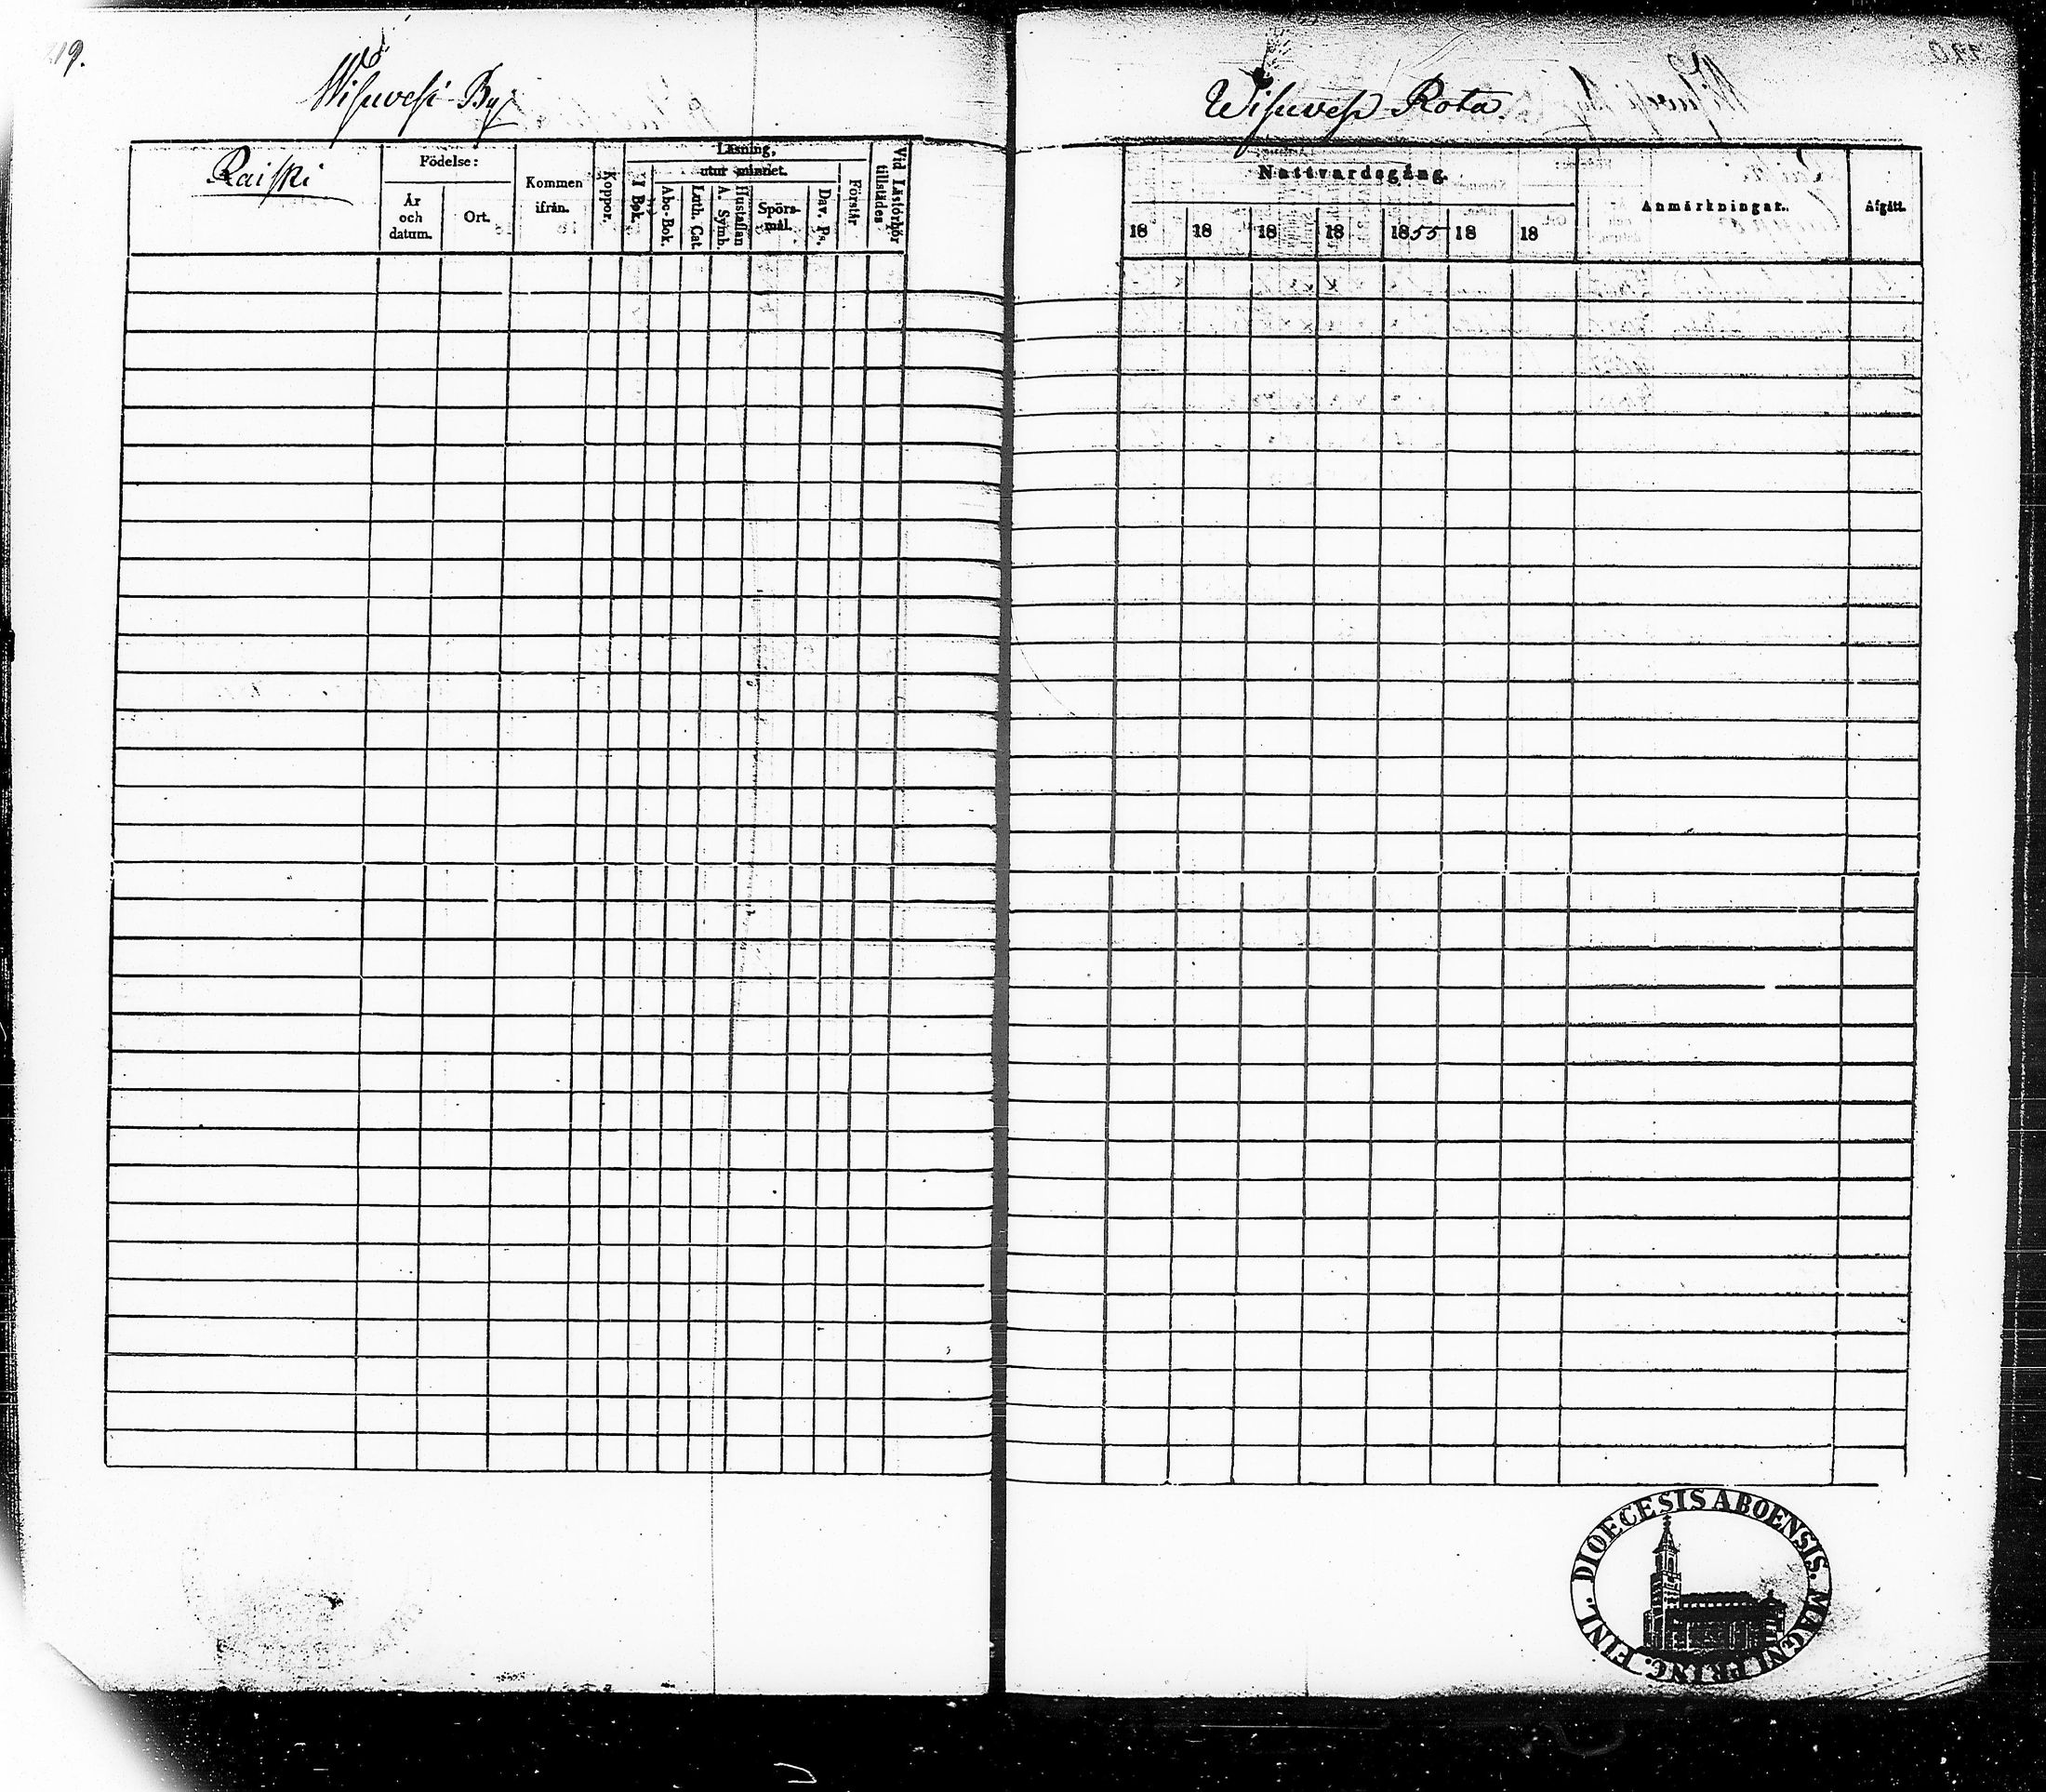 19.
Wisuvesi By
Raiski
Födelse:
År och datum.
Ort.
Kommen ifrån.
Koppor.
Läsning,
I Bok.
utur minnet.
Abc-Bok.
Luth. Cat.
A. Symb.
Hustaflan
Spörs-mål.
Dav. Ps.
Förstår
Vid Läsförhör tillstädes
Wisuvesi Rota.
Nattvardsgång.
18 18 18 18 1855 18 18
Anmärkningar.
Afgått.
DIOECESIS ABOENSIS. MAGNI PRINC. FINL.